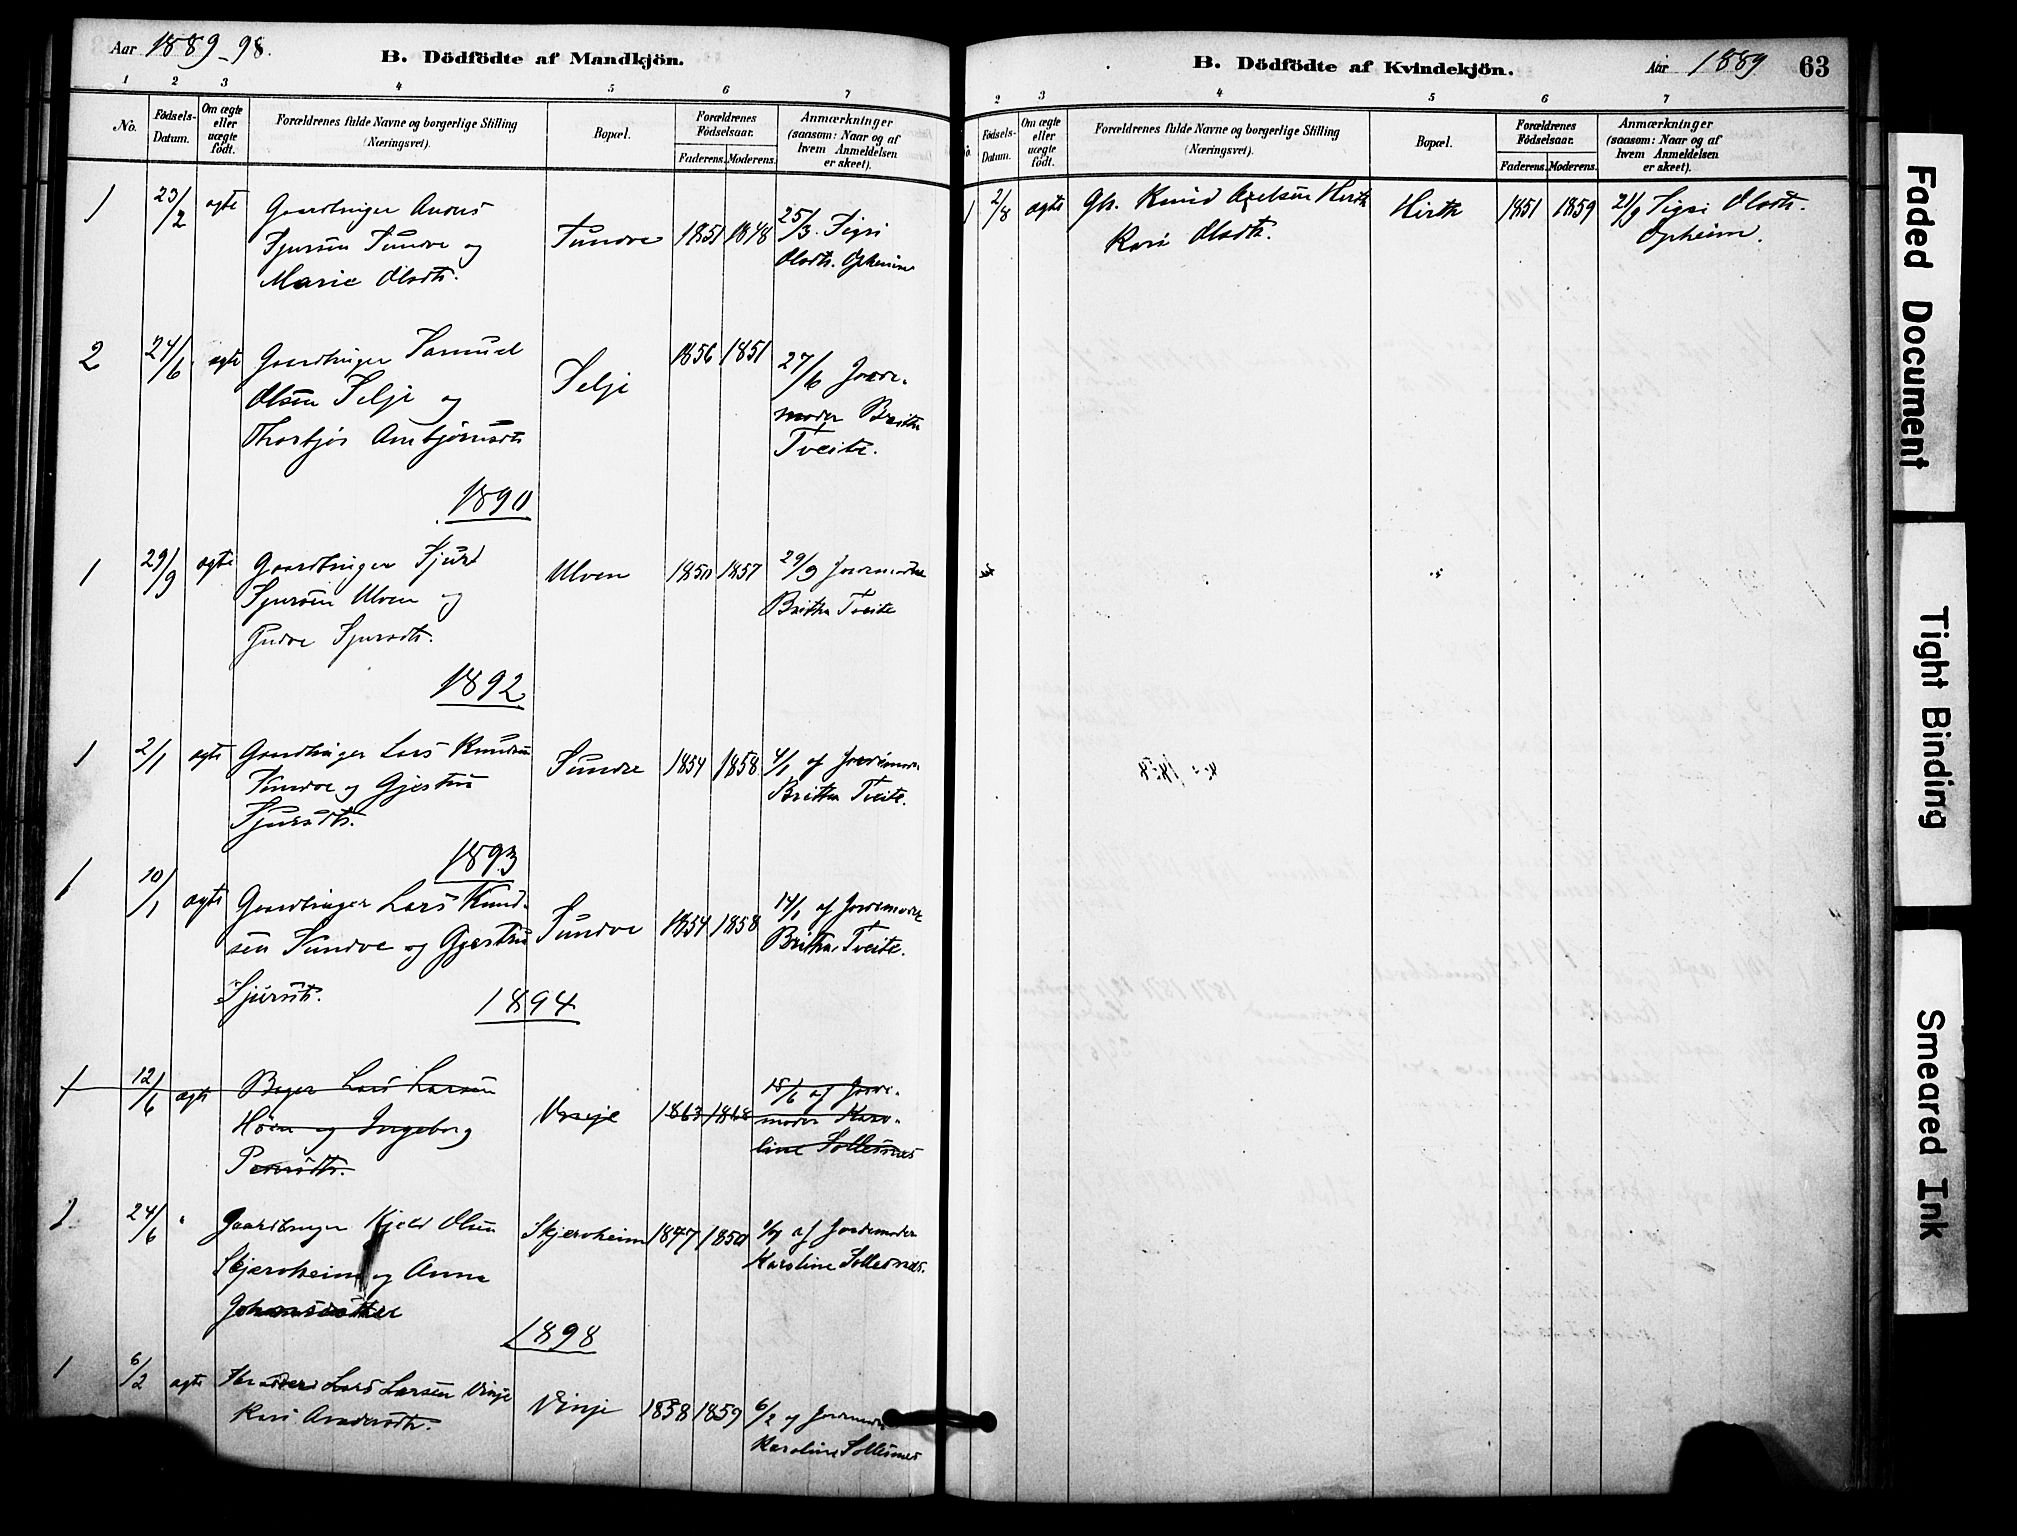 Aar 1889-98.
B. Dödfödte af Mandkjön.
1 2 3 4 5 6 7
No.
Fødsels-Datum.
Om ægte eller uægte født.
Forældrenes fulde Navne og borgerlige Stilling (Næringsvei).
Bopæl.
Forældrenes Fødselsaar.
Faderens. Moderens.
Anmærkninger (saasom: Naar og af hvem Anmeldelsen er skeet).
1 23/2 ægte Gaardbruger Anders Sundve 1851 1848 25/3 Sigri
Sjursen Sundve og Olsdtr. Opheim
Marie Olsdtr.
2 24/6 ægte Gaardbruger Samuel Selje 1856 1851 27/6 Jorde-
Olsen Selje og moder Britha
Thorbjør Arnbjørnsdtr Tveite.
1890
1 29/9 ægte Gaardbruger Sjurd Ulven 1850 1857 29/9 Jormoder
Sjursen Ulven og Britha Tveite
Gudve Sjursdtr.
1892
1 2/1 ægte Gaardbruger Lars Knudsen Sundve 1854 1858 4/1 af Jordemoder
Sundve og Gjertru Britha Tveite.
Sjursdtr.
1893
1 10/1 ægte Gaardbruger Lars Knud- Sundve 1854 1858 14/1 af Jordemoder
sen Sundve og Gjertru Britha Tveite.
Sjursdtr.
1894
1 12/6 ægte Lars Larsen Vinje 1863 1868 15/6 af Jorde-
og Ingeborg moder Karo-
line Sollesnes
1 24/6 " Gaardbruger Kjeld Olsen Skjerveheim 1847 1850 1/7 af Jordemoder
Skjerveheim og Anna Karoline Sollesnes.
Johannesdatter
1898
1 6/2 ægte Lars Larsen Vinje Vinje 1858 1859 6/2 af Jordemoder
Kari Andersdtr. Karoline Sollesnes
B. Dödfödte af Kvindekjön.
Aar 1889 63
2 3 4 5 6 7
Fødsels-Datum.
Om ægte eller uægte født.
Forældrenes fulde Navne og borgerlige Stilling (Næringsvei).
Bopæl.
Forældrenes Fødselsaar.
Faderens. Moderens.
Anmærkninger (saasom: Naar og af hvem Anmeldelsen er skeet).
1 2/8 ægte Gb. Knud Axelsen Hirth Hirth 1851 1859 21/9 Sigri Olsdtr.
Kari Olsdtr. Opheim.
Faded Document
Tight Binding
Smeared Ink